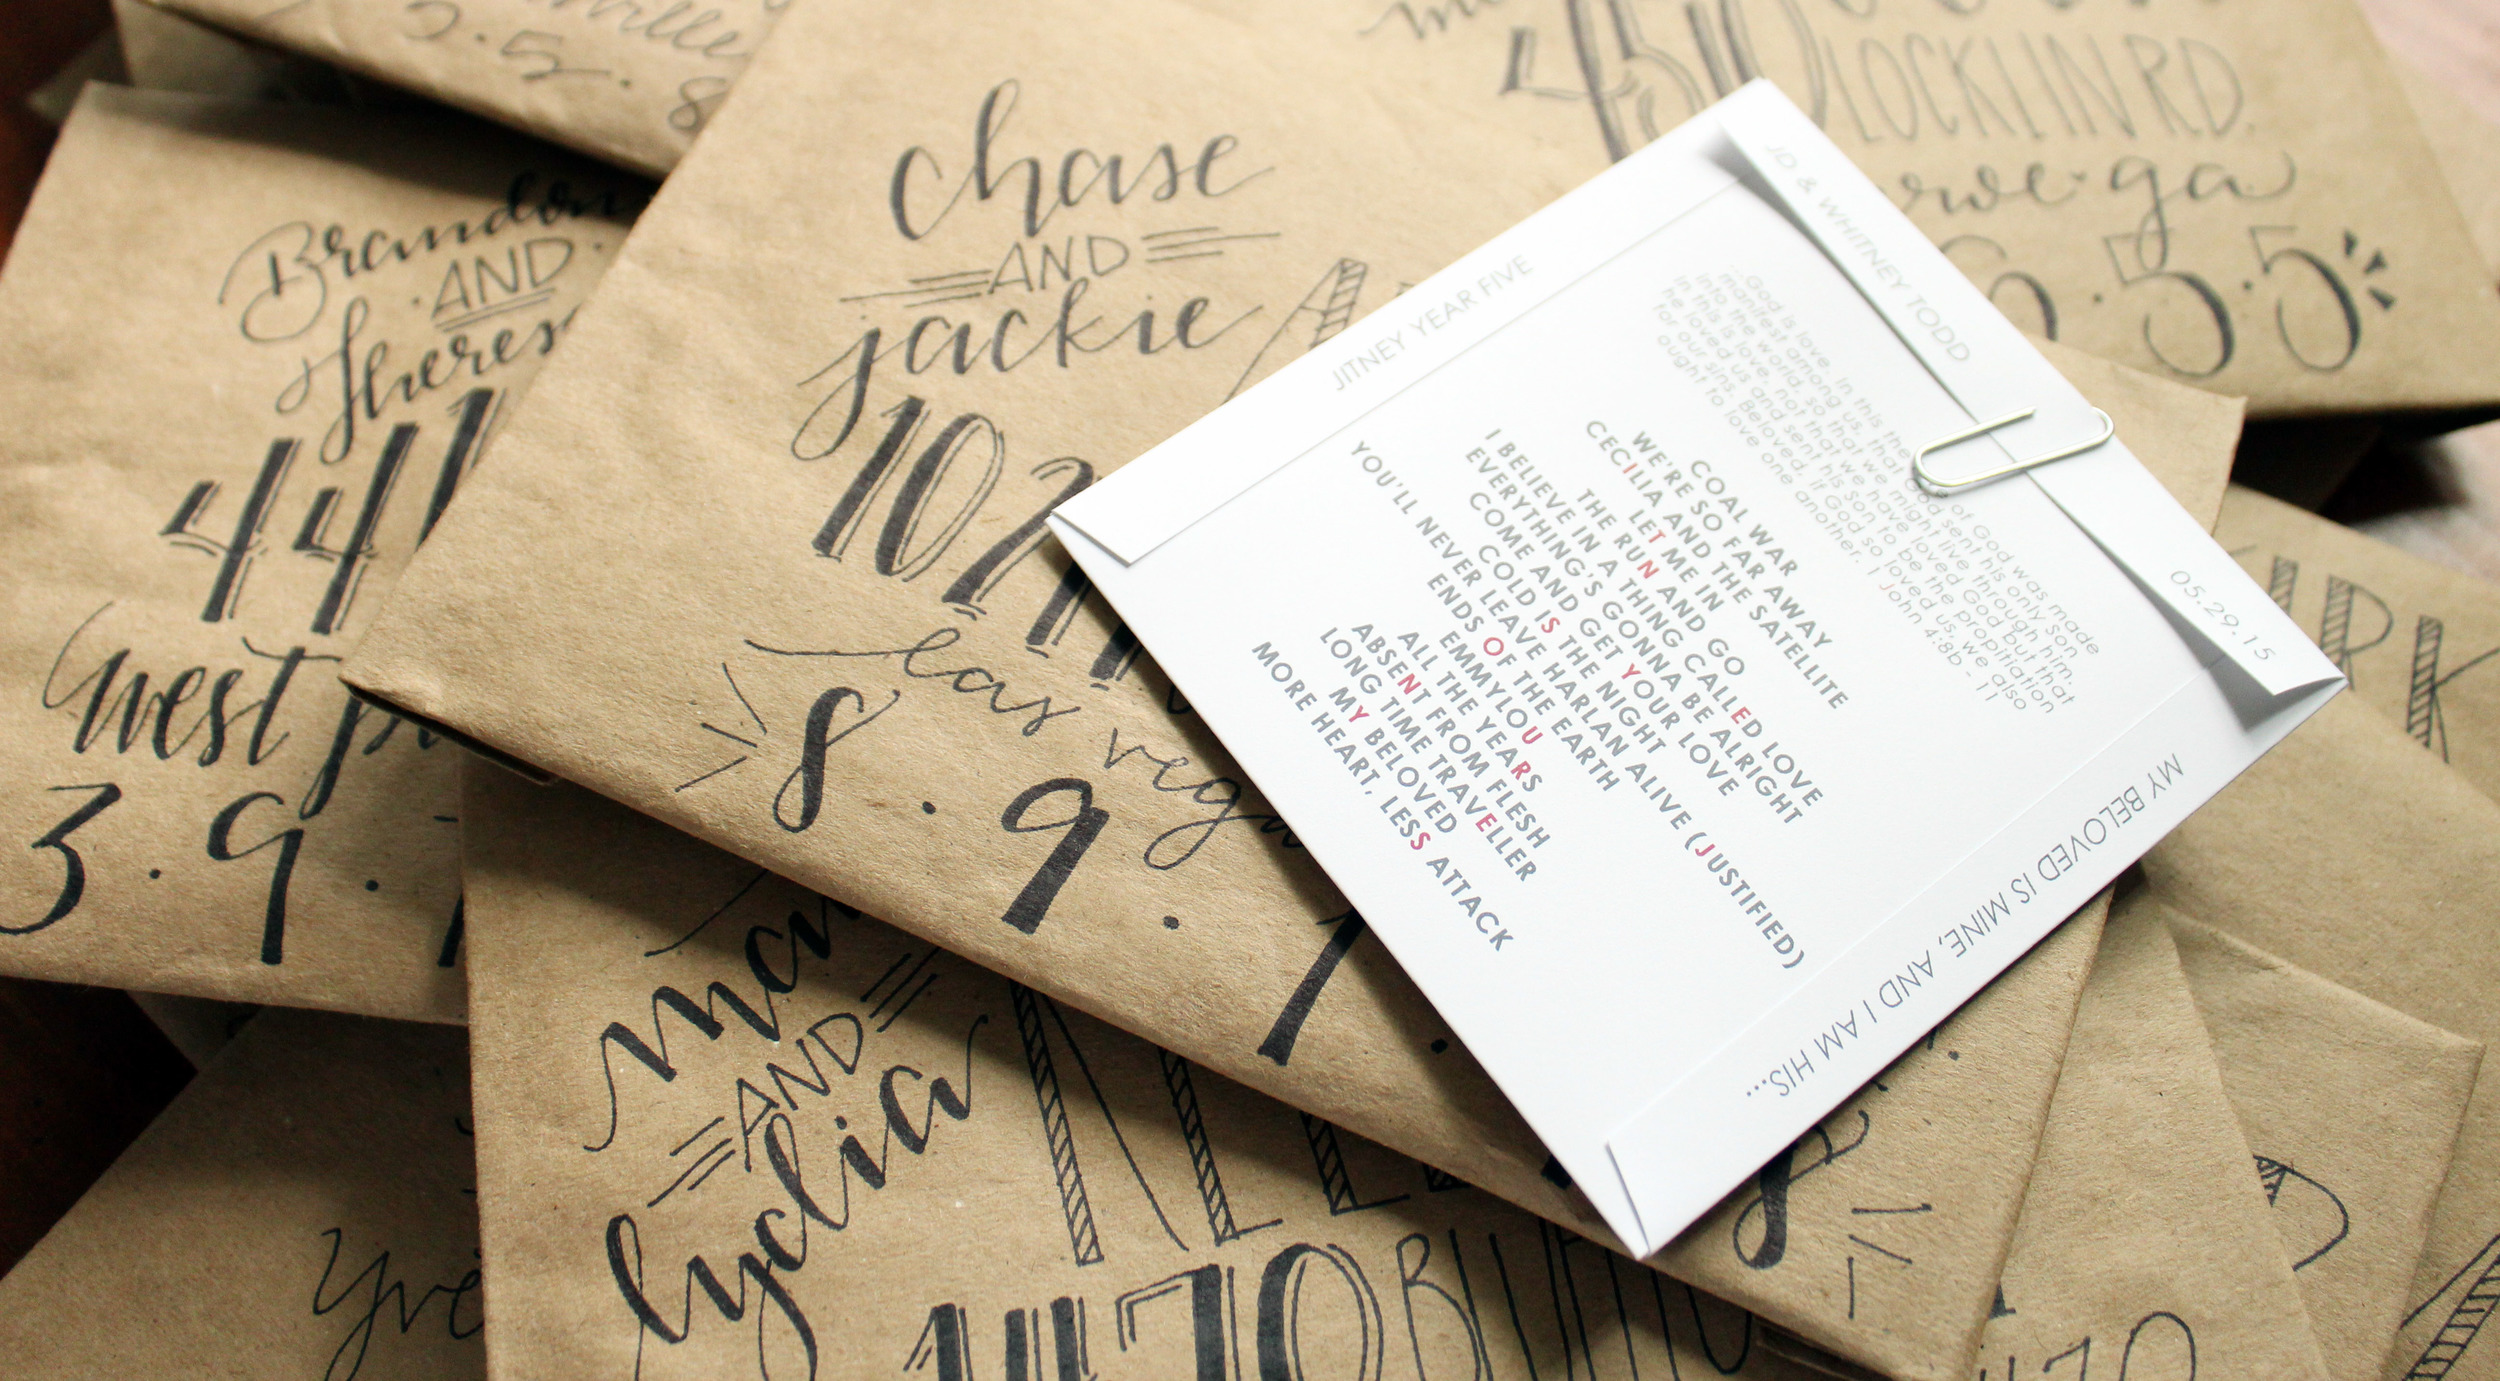 ville
5.5.8
Brandon
AND
441
west
3.9.
chase
AND
jackie
10
las vegas
8.9.1.
450
LOCKLIN RD.
ga
5.5
lydia
AND
1470
JITNEY YEAR FIVE
JD & WHITNEY TODD
05.29.15
MY BELOVED IS MINE, AND I AM HIS...
...God is love. In this the love of God was made
manifest among us, that God sent his only son
into the world, so that we might live through him.
In this is love, not that we have loved God but that
he loved us and sent his son to be the propitiation
for our sins. Beloved, if God so loved us, we also
ought to love one another. 1 John 4:8b - 11
COAL WAR
WE'RE SO FAR AWAY
CECILIA AND THE SATELLITE
LET ME IN
THE RUN AND GO
I BELIEVE IN A THING CALLED LOVE
EVERYTHING'S GONNA BE ALRIGHT
COME AND GET YOUR LOVE
COLD IS THE NIGHT
YOU'LL NEVER LEAVE HARLAN ALIVE (JUSTIFIED)
ENDS OF THE EARTH
EMMYLOU
ALL THE YEARS
ABSENT FROM FLESH
LONG TIME TRAVELLER
MY BELOVED
MORE HEART, LESS ATTACK